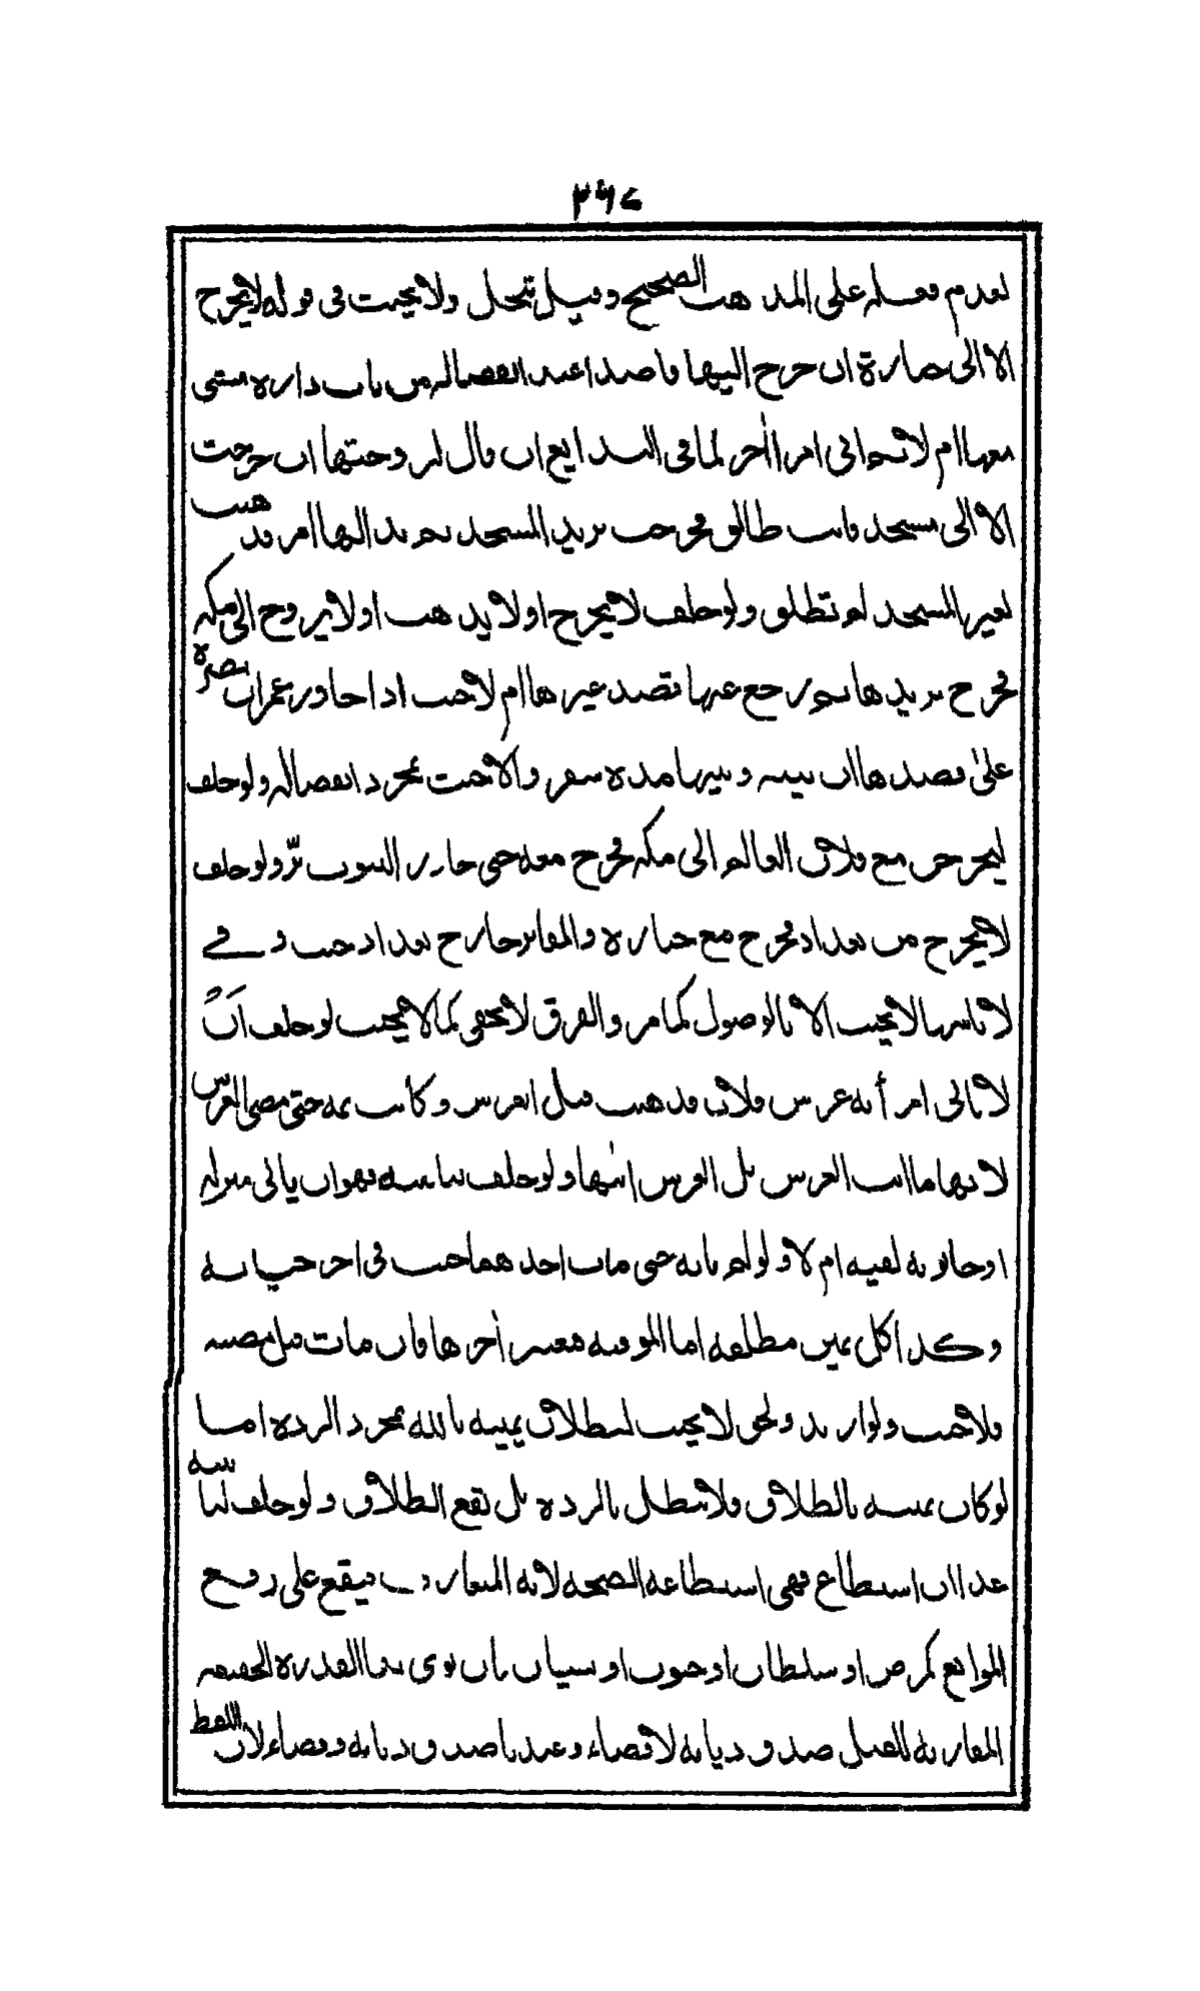 ٣٦٤
لعدم فعله على المذهب الصحيح وقيل تنحل ولا يحنث فى قوله لا يخرج
الا الى جنازة ان خرج اليها قاصدا عند انفصاله من باب داره مشى
معها ام لا ثم اتى امرا اخر لما فى البدايع ان قال لزوجتها ان خرجت
الا الى مسجد فانت طالق فخرجت تريد المسجد ثم بدا لها امر فذهبت
لغير المسجد لم تطلق ولو حلف لا يخرج او لا يذهب او لا يروح الى مكه
فخرج يريدها ثم رجع عنها قصد غيرها ام لا حنث اذا جاوز عمران مصره
على قصدها ان بينه وبينها مده سفر والا حنث بمجرد انفصاله ولو حلف
ليخرجن مع فلان العالم الى مكه فخرج معه حتى جاوز البيوت بر ولو حلف
لا يخرج من بغداد فخرج مع جنازه والمقابر خارج بغداد حنث وفى
لا ياتيها لا يحنث الا بالوصول كما مر والفرق لا يخفى كما لا يحنث لو حلف ان
لا تاتى امرأته عرس فلان فذهبت قبل العرس وكانت ثمه حتى مضى العرس
لانها ما اتت العرس بل العرس اتيها ولو حلف لياتينه فهو ان ياتى منزله
او حانوته لقيه ام لا ولو لم ياته حتى مات احدهما حنث فى اخر حياته
وكذا كل يمين مطلقه اما الموقته فمعتبر اخرها فان مات قبل مضيه
فلا حنث ولو ارتد ولحق لا يحنث لبطلان يمينه بالله بمجرد الرده اما
لو كان يمينه بالطلاق فلا تبطل بالرده بل تقع الطلاق ولو حلف لياتينه
غدا ان استطاع فهى استطاعه الصحه لانه المتعارف فيقع على رفع
الموانع كمرض او سلطان او جنون او نسيان فان نوى بها القدره الحقيقه
المقارنه للفعل صدق ديانه لا قضاء وعندنا صدق ديانه وقضاء لان اللفظ